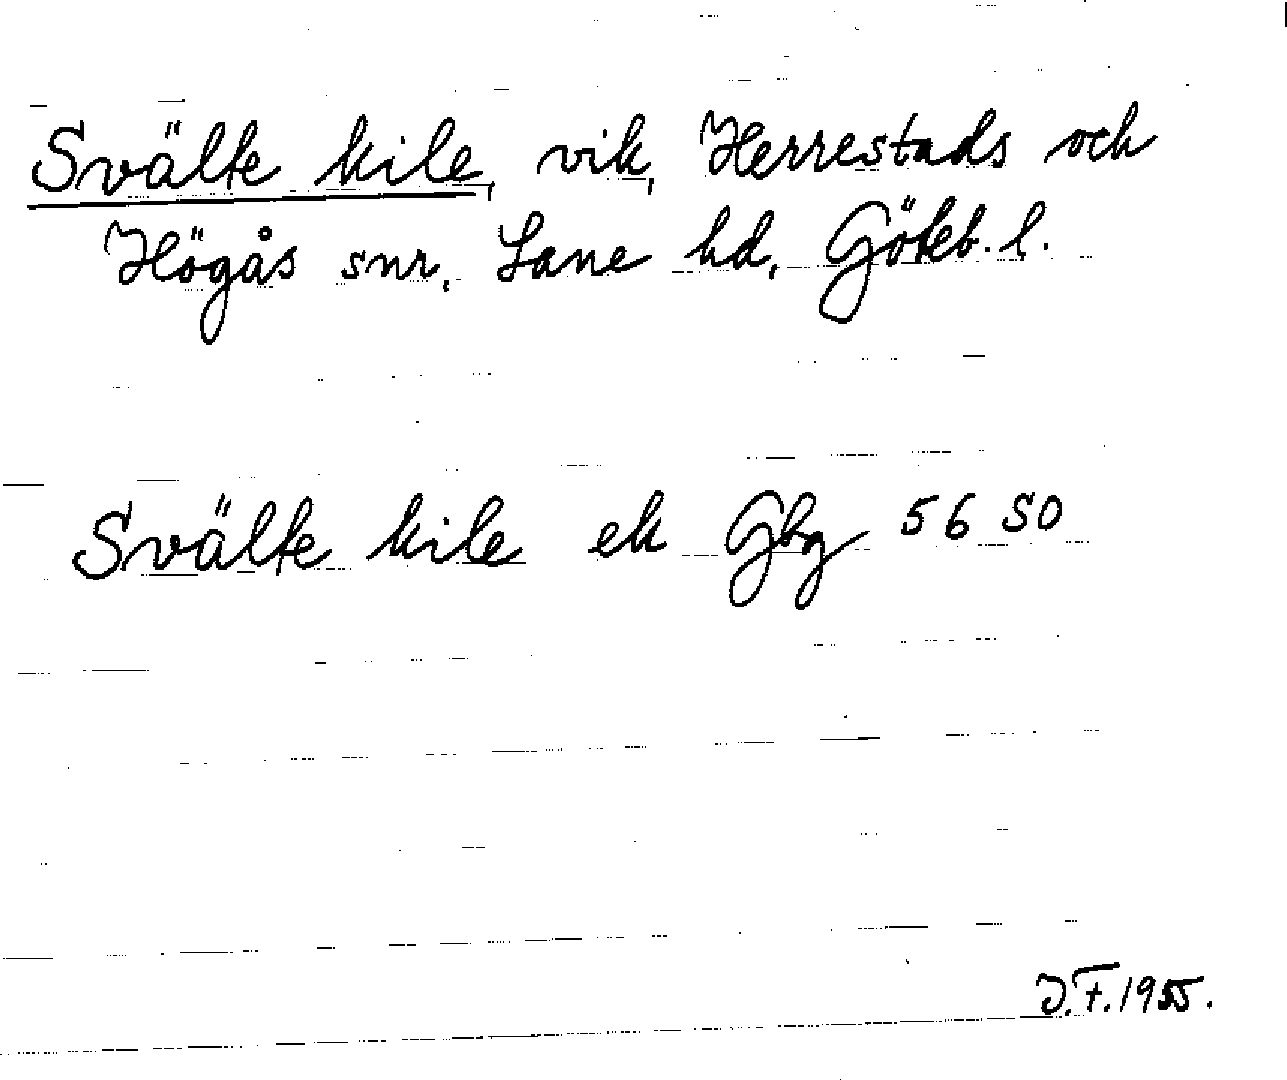 Svälte kile, vik, Herrestads och
Högås snr, Lane hd, Göteb. l.
Svälte kile ek Gbg 56 SO
J.F. 1955.